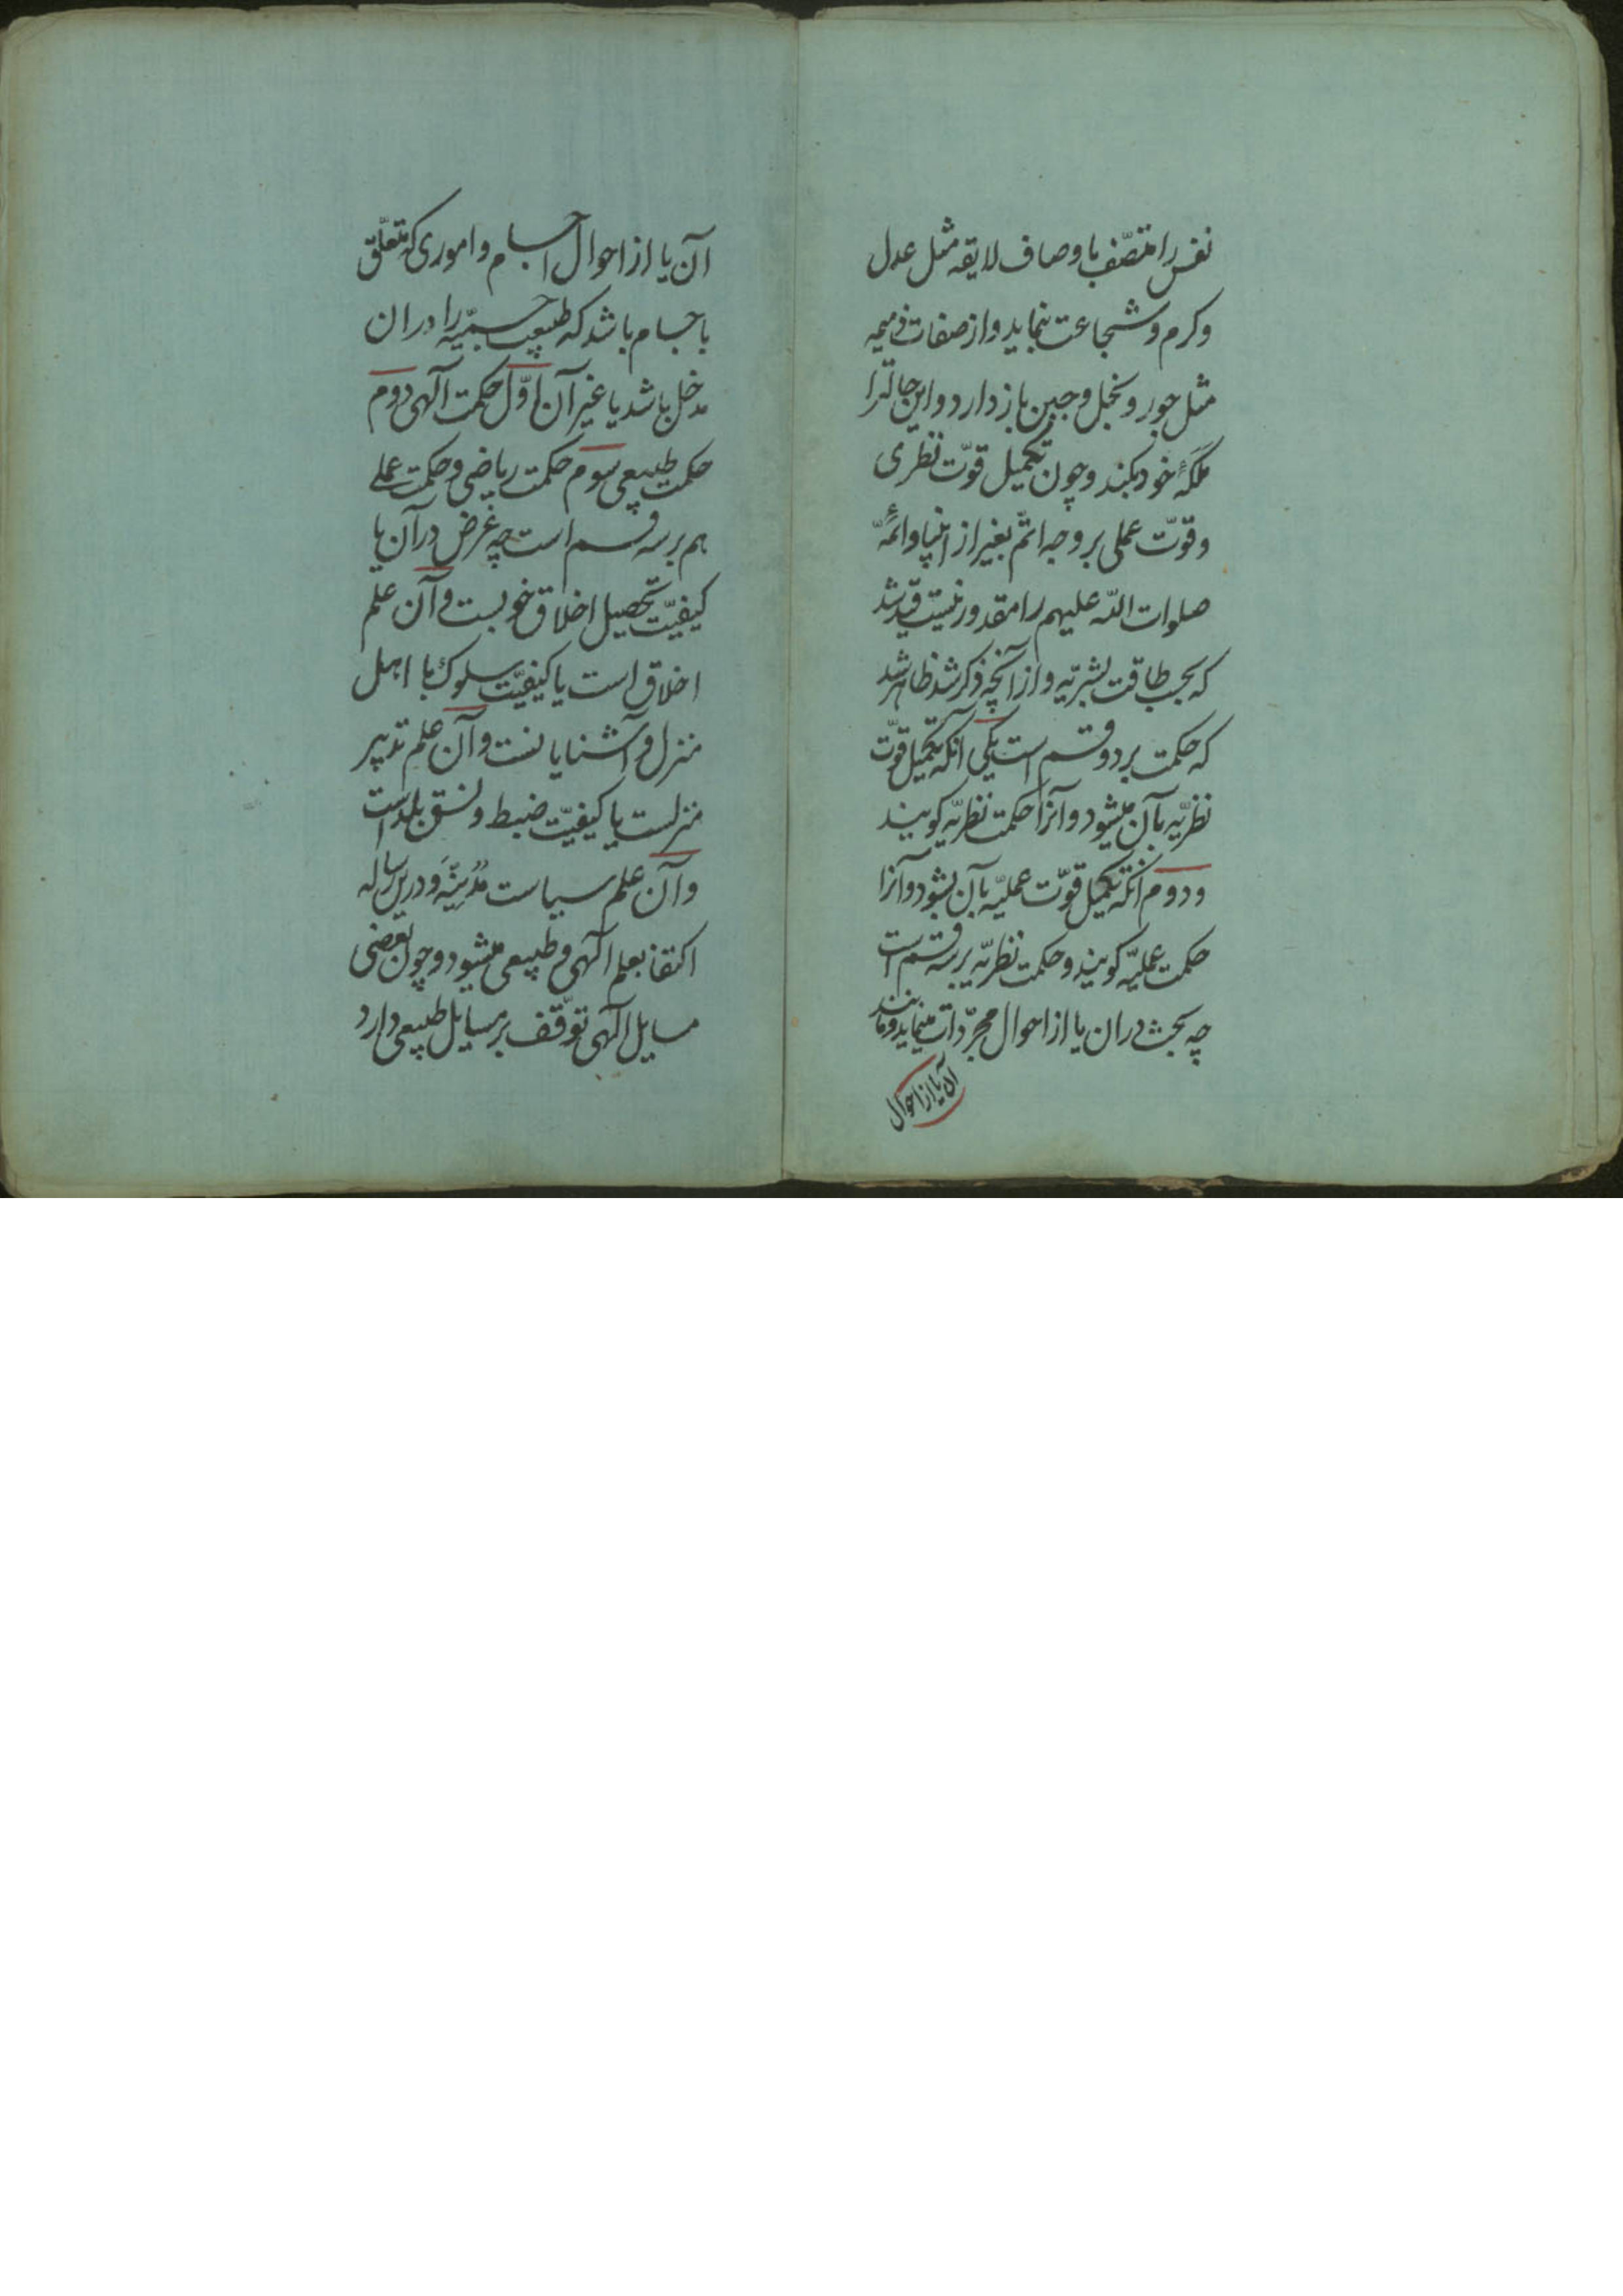 نفس را متّصف باوصاف لایقه مثل عدل
وکرم وشجاعت بنماید واز صفات ذمیمه
مثل جور وبخل وجبن باز دارد واین حالترا
ملکهٔ خود بکند وچون تکمیل قوّت نظری
وقوّت عملی بر وجه اتمّ بغیر از انبیا وائمّهٔ
صلوات اللّه علیهم را مقدور نیست قید شد
که بحسب طاقت بشریّه واز آنچه ذکر شد ظاهر شد
که حکمت بر دو قسم است یکی آنکه تکمیل قوّت
نظریّه بآن میشود وآنرا حکمت نظریّه کویند
ودوم آنکه تکمیل قوّت عملیّه بآن بشود وآنرا
حکمت عملیّه کویند وحکمت نظریّه بر سه قسم است
چه بحث دران یا از احوال مجرّدات مینماید ومانند
آن یا از احوال
آن یا از احوال اجسام واموری که متعلّق
باجسام باشد که طبیعت جسمیّه را دران
مدخل باشد یا غیر آن اوّل حکمت آلهی دوم
حکمت طبیعی سوم حکمت ریاضی وحکمت عملی
هم بر سه قسم است چه غرض در آن یا
کیفیّت تحصیل اخلاق خوبست وآن علم
اخلاق است یا کیفیّت سلوک با اهل
منزل وآشنایانست وآن علم تدبیر
منزلست یا کیفیّت ضبط ونسق بلد است
وآن علم سیاست مُدُنِیَّه ودرین رساله
اکتفا بعلم آلهی وطبیعی میشود وچون بعضی
مسایل آلهی توقّف بر مسایل طبیعی دارد